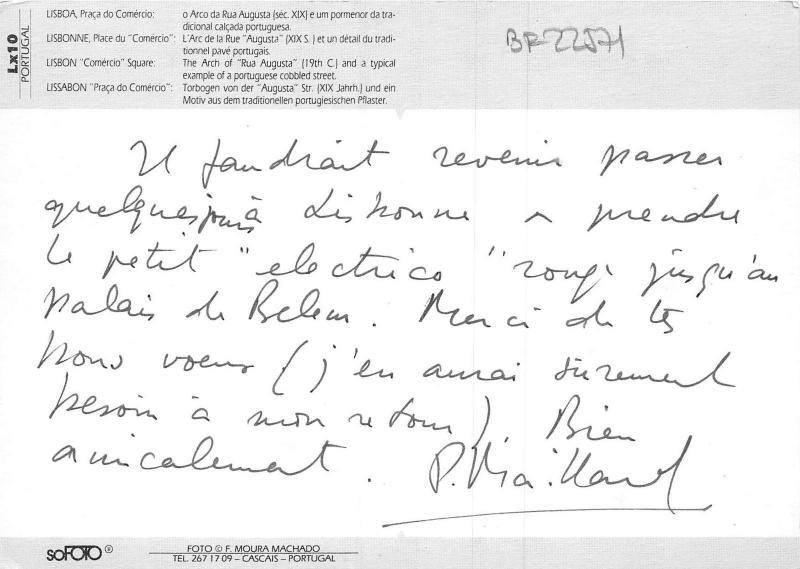 Lx10
PORTUGAL
LISBOA, Praça do Comércio: o Arco da Rua Augusta (séc. XIX) e um pormenor da tra-
dicional calçada portuguesa.
LISBONNE, Place du "Comércio": L'Arc de la Rue "Augusta" (XIX S.) et un détail du tradi-
tionnel pavé portugais.
LISBON "Comércio" Square: The Arch of "Rua Augusta" (19th C.) and a typical
example of a portuguese cobbled street.
LISSABON "Praça do Comércio": Torbogen von der "Augusta" Str. (XIX Jahrh.) und ein
Motiv aus dem traditionellen portugiesischen Pflaster.
BR22571
Il faudrait revenir passer
quelques jours à Lisbonne prendre
le petit "electrico" rouge jusqu'au
palais de Belem. Merci de tes
bons voeux (j'en aurai sûrement
besoin à mon retour) Bien
amicalement. P.
soFOTO ®
FOTO © F. MOURA MACHADO
TEL. 267 17 09 – CASCAIS – PORTUGAL